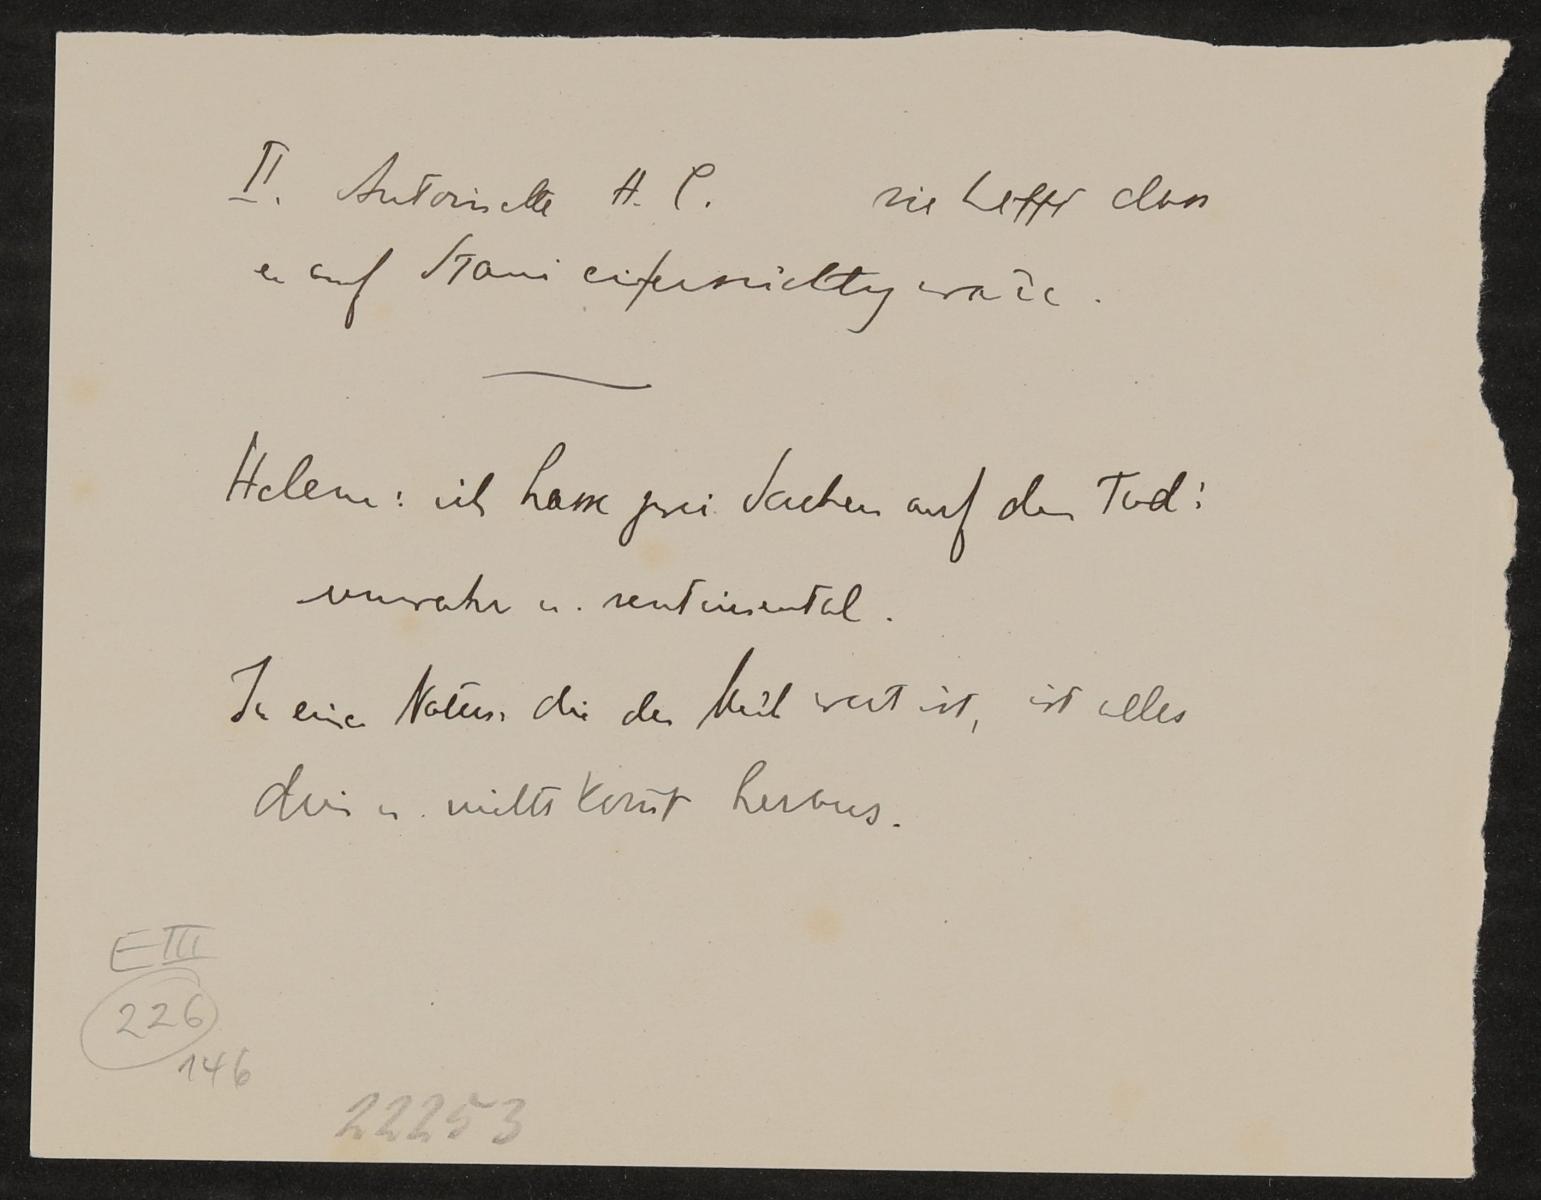 II. Antoinette H. C. sie hofft dass
er auf Stani eifersüchtig wäre.
Helene: ich hasse zwei Sachen auf den Tod:
unwahr u. sentimental.
In einer Natur, die der Müh wert ist, ist alles
drin u. nichts kommt heraus.
E III
226
146
22253